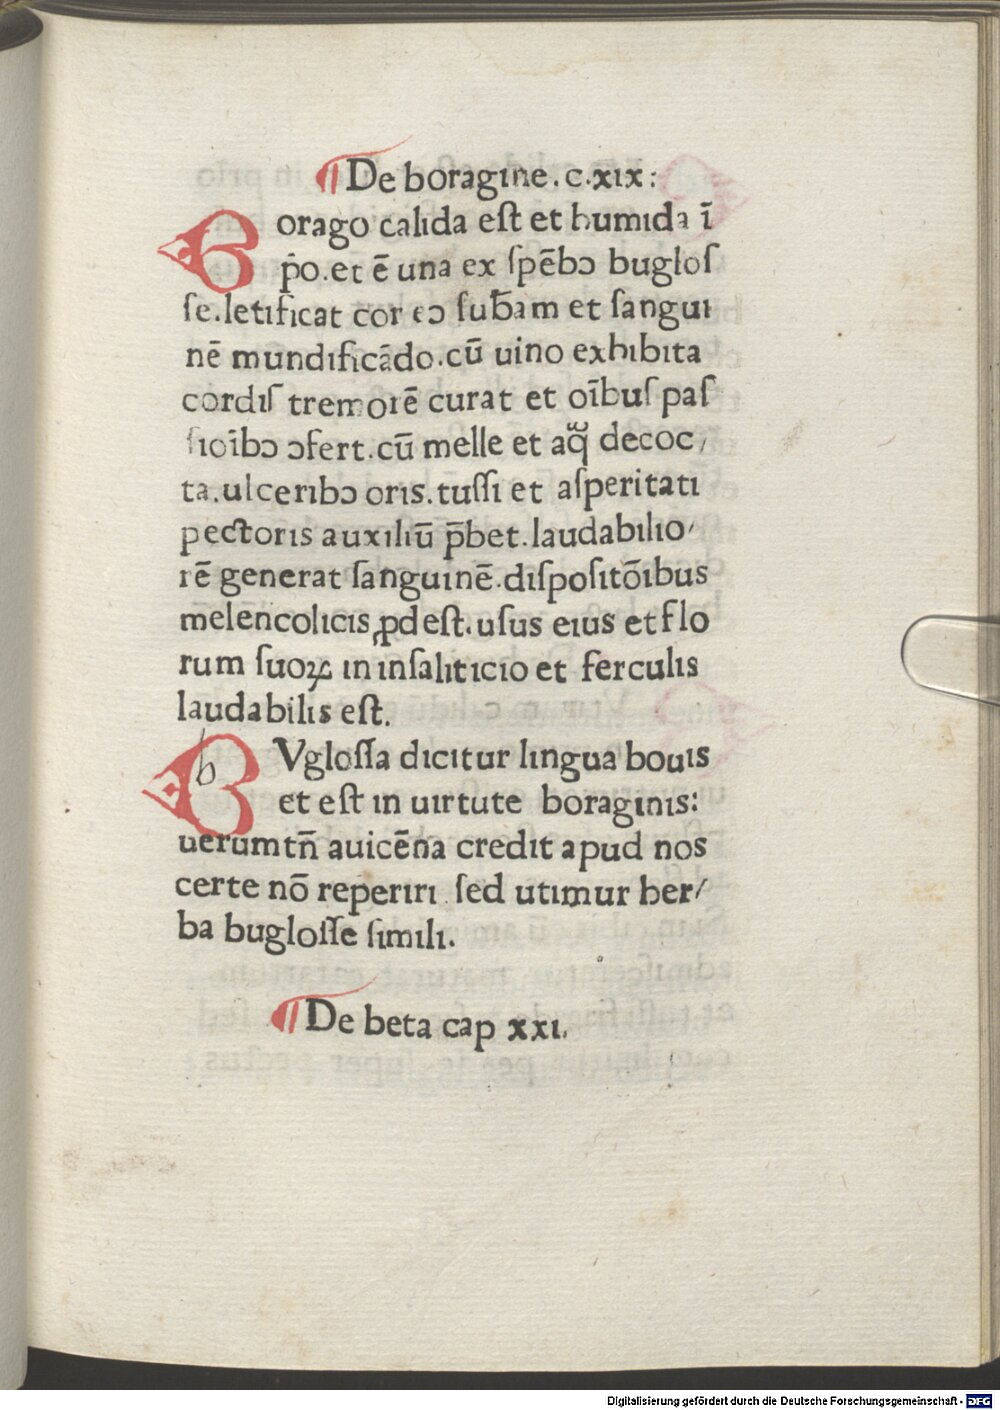 ¶ De boragine.c.xix:
Borago calida eſt et humida ī
p̄o.et ē una ex ſpēbꝰ bugloſ
ſe.letificat cor eꝰ ſub̄am et ſangui
nē mundificādo.cū uino exhibita
cordiſ tremorē curat et oībuſ paſ
ſioībꝰ ꝯfert.cū melle et aq̈̄ decoc/
ta.ulceribꝰ oris.tuſſi et aſperitati
pectoris auxiliū p̄bet.laudabilio/
rē generat ſanguinē.diſpoſitōibus
melencolicis ꝓdeſt.uſus eius et flo
rum ſuoꝝ in inſaliticio et ferculis
laudabilis eſt.
BVgloſſa dicitur lingua bouis
et eſt in uirtute boraginis:
uerumtn̄ auicēna credit apud nos
certe nō reperiri ſed utimur her/
ba bugloſſe ſimili.
¶ De beta cap xxi.
Digitalisierung gefördert durch die Deutsche Forschungsgemeinschaft - DFG